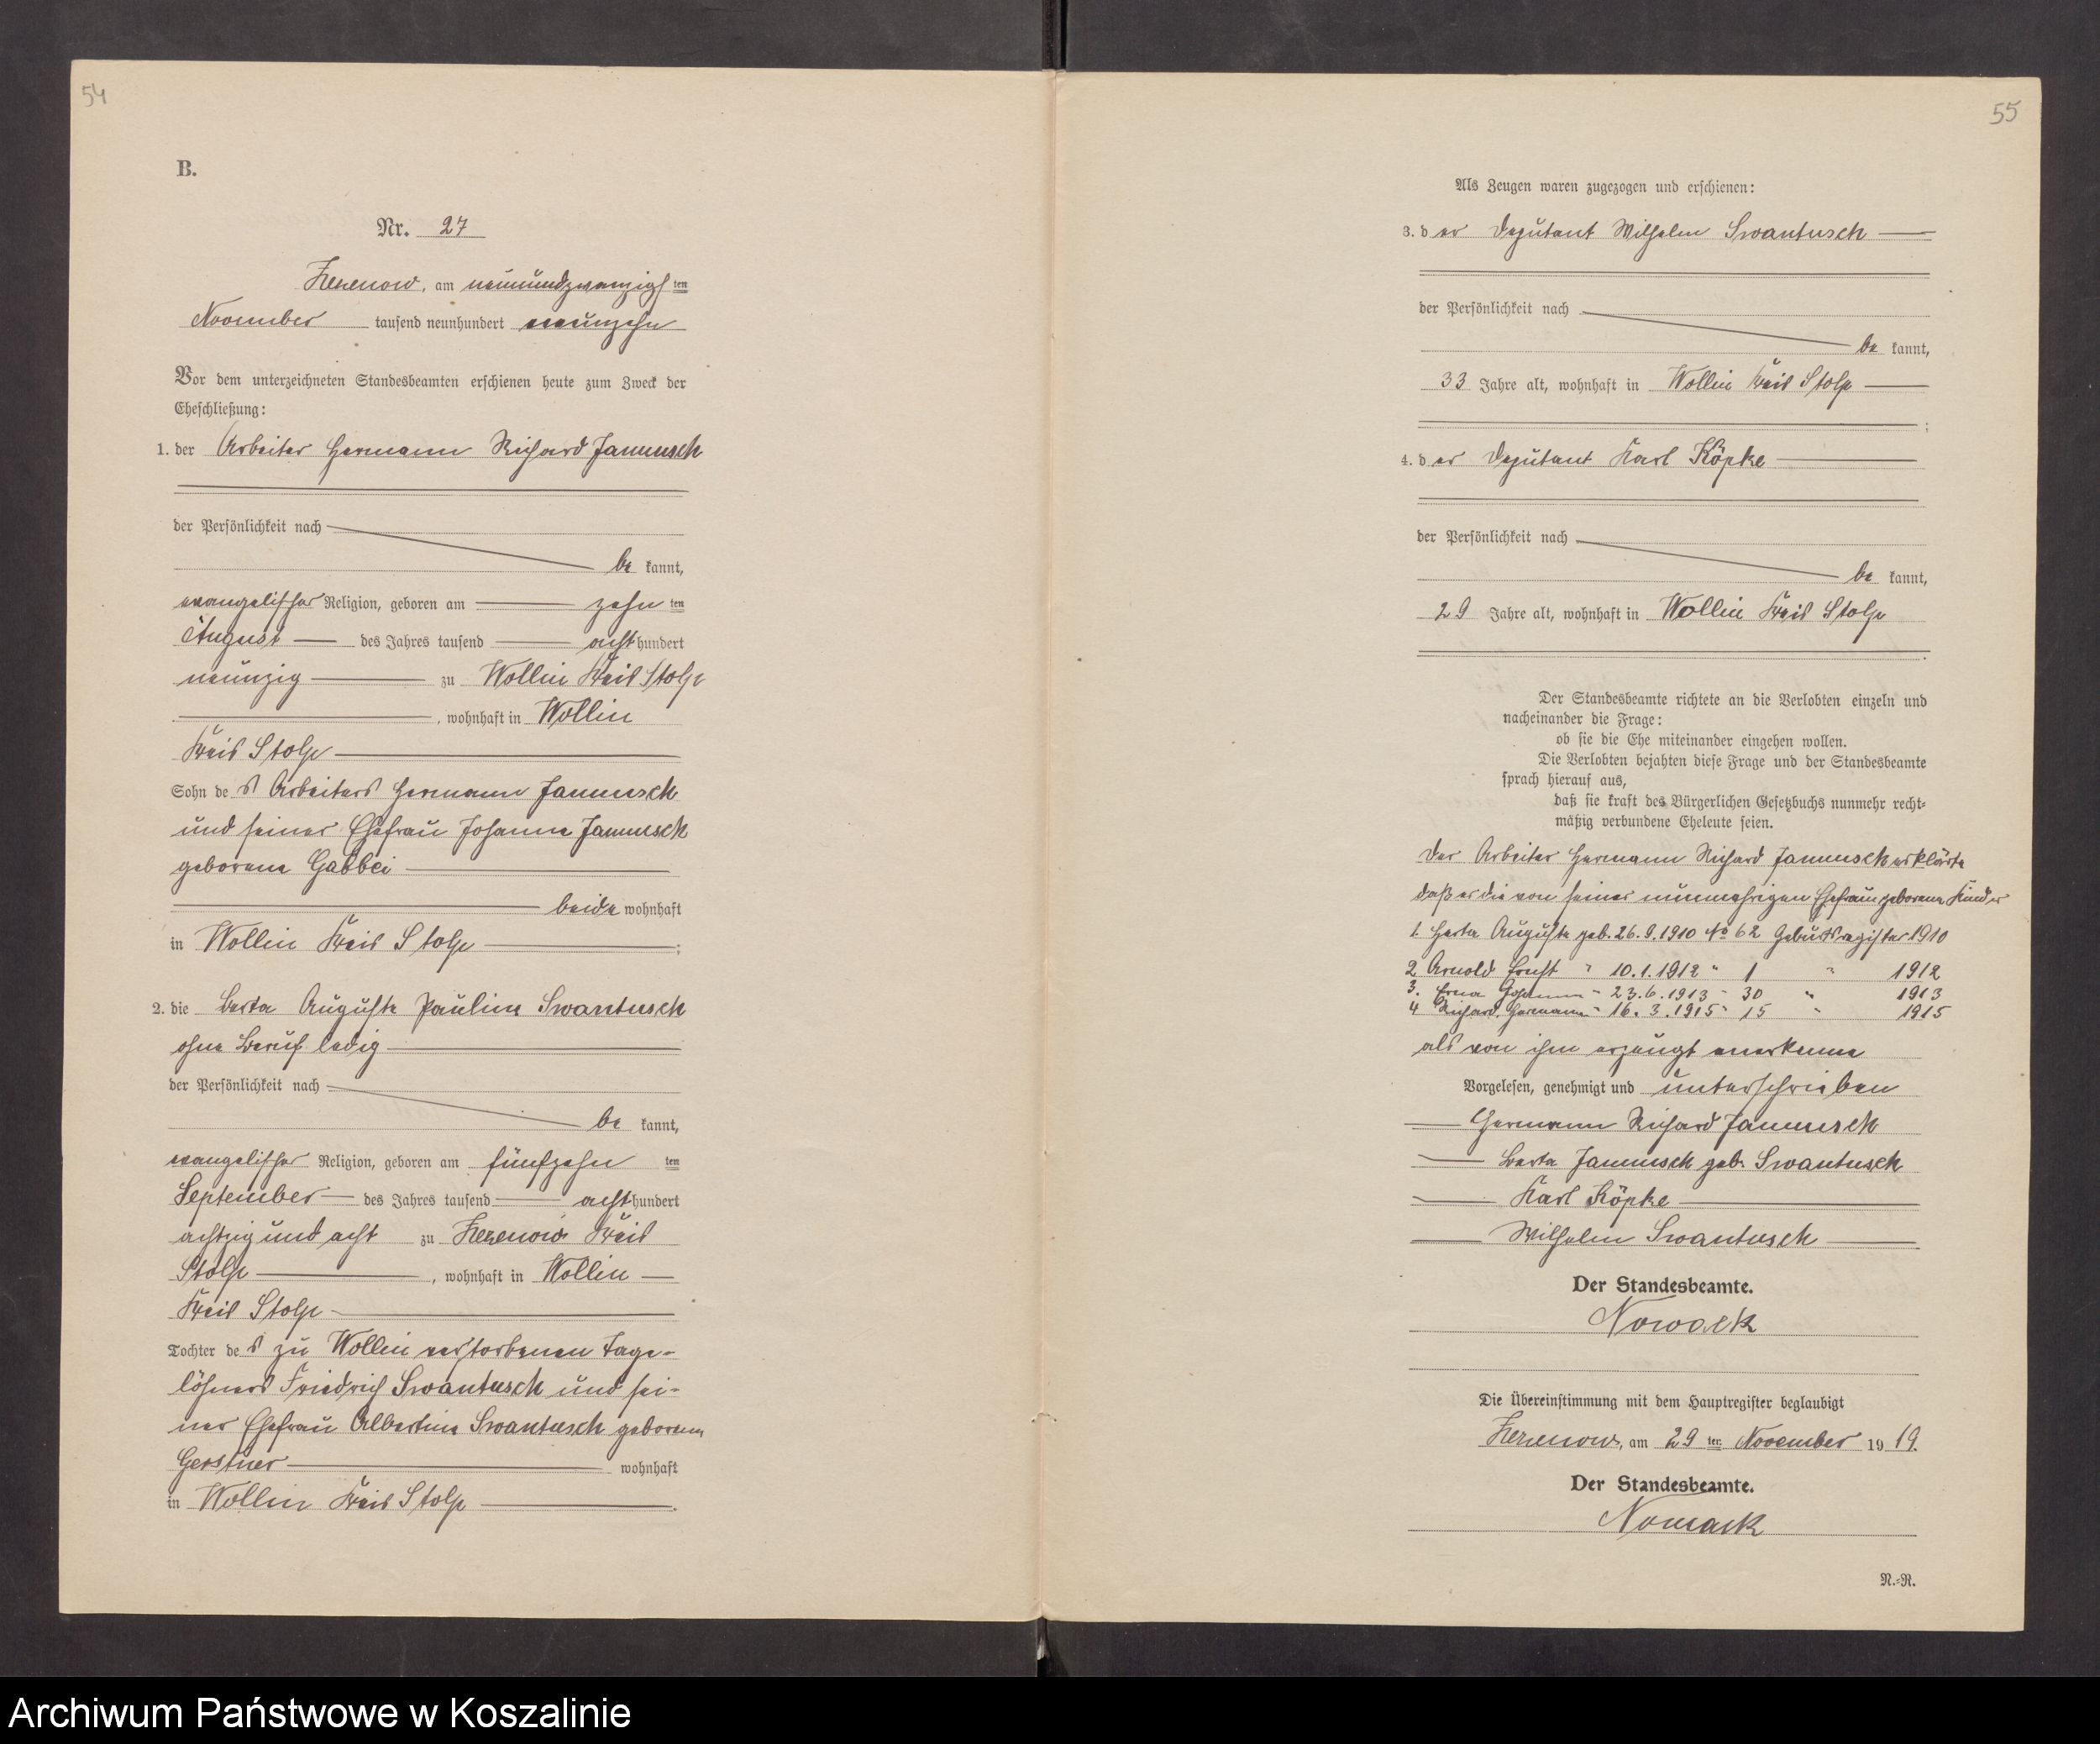 54
B.
Nr. 27
Zezenow, am neunundzwanzigsten
November tausend neunhundert neunzehn
Vor dem unterzeichneten Standesbeamten erschienen heute zum Zweck der
Eheschließung:
1. der Arbeiter Hermann Richard Jannusch
der Persönlichkeit nach
be kannt,
evangelischer Religion, geboren am zehn ten
August des Jahres tausend acht hundert
neunzig zu Wollin Kreis Stolp
, wohnhaft in Wollin
Kreis Stolp
Sohn des Arbeiters Hermann Jannusch
und seiner Ehefrau Johanne Jannusch
geborene Gabbei
beide wohnhaft
in Wollin Kreis Stolp ;
2. die Berta Auguste Pauline Swantusch
ohne Beruf ledig
der Persönlichkeit nach
be kannt,
evangelischer Religion, geboren am fünfzehn ten
September des Jahres tausend acht hundert
achtzig und acht zu Zezenow Kreis
Stolp , wohnhaft in Wollin
Kreis Stolp
Tochter des zu Wollin verstorbenen Tage-
löhners Friedrich Swantusch und sei-
ner Ehefrau Albertine Swantusch geborene
Gerstner wohnhaft
in Wollin Kreis Stolp .
55
Als Zeugen waren zugezogen und erschienen:
3. der Deputant Wilhelm Swantusch
der Persönlichkeit nach
be kannt,
33 Jahre alt, wohnhaft in Wollin Kreis Stolp
;
4. der Deputant Karl Köpke
der Persönlichkeit nach
be kannt,
29 Jahre alt, wohnhaft in Wollin Kreis Stolp
.
Der Standesbeamte richtete an die Verlobten einzeln und
nacheinander die Frage:
ob sie die Ehe miteinander eingehen wollen.
Die Verlobten bejahten diese Frage und der Standesbeamte
sprach hierauf aus,
daß sie kraft des Bürgerlichen Gesetzbuchs nunmehr recht-
mäßig verbundene Eheleute seien.
Der Arbeiter Hermann Richard Jannusch erklärte
daß er die von seiner nunmehrigen Ehefrau geborene Kinder
1. Herta Auguste geb. 26.9.1910 No 62 Geburtsregister 1910
2 Arnold Ernst " 10.1.1912 " 1 " 1912
3. Erna Johanna " 23.6.1913 " 30 " 1913
4 Richard Hermann " 16.3.1915 " 15 " 1915
als von ihm erzeugt anerkenne
Vorgelesen, genehmigt und unterschrieben
Hermann Richard Jannusch
Berta Jannusch geb. Swantusch
Karl Köpke
Wilhelm Swantusch
Der Standesbeamte.
Nowack
Die Übereinstimmung mit dem Hauptregister beglaubigt
Zezenow, am 29 ten November 1919.
Der Standesbeamte.
Nowack
N.-R.
Archiwum Państwowe w Koszalinie